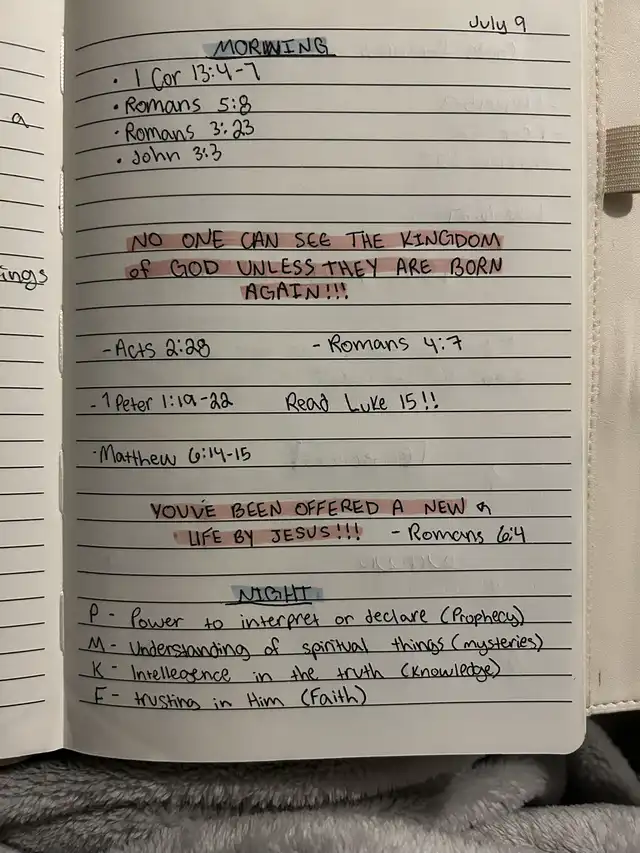 July 9
MORNING
• 1 Cor 13:4-7
• Romans 5:8
• Romans 3:23
• John 3:3
a
NO ONE CAN SEE THE KINGDOM
of GOD UNLESS THEY ARE BORN
ings
AGAIN!!!
- Acts 2:28 - Romans 4:7
- 1 Peter 1:19-22 Read Luke 15!!
· Matthew 6:14-15
YOUVE BEEN OFFERED A NEW
LIFE BY JESUS!!! - Romans 6:4
NIGHT
P - Power to interpret or declare (Prophecy)
M - Understanding of spiritual things (mysteries)
K - Intellegence in the truth (Knowledge)
F - trusting in Him (Faith)